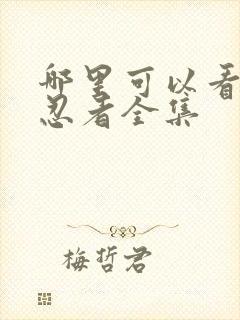 哪里可以看
忍者全集
梅哲君